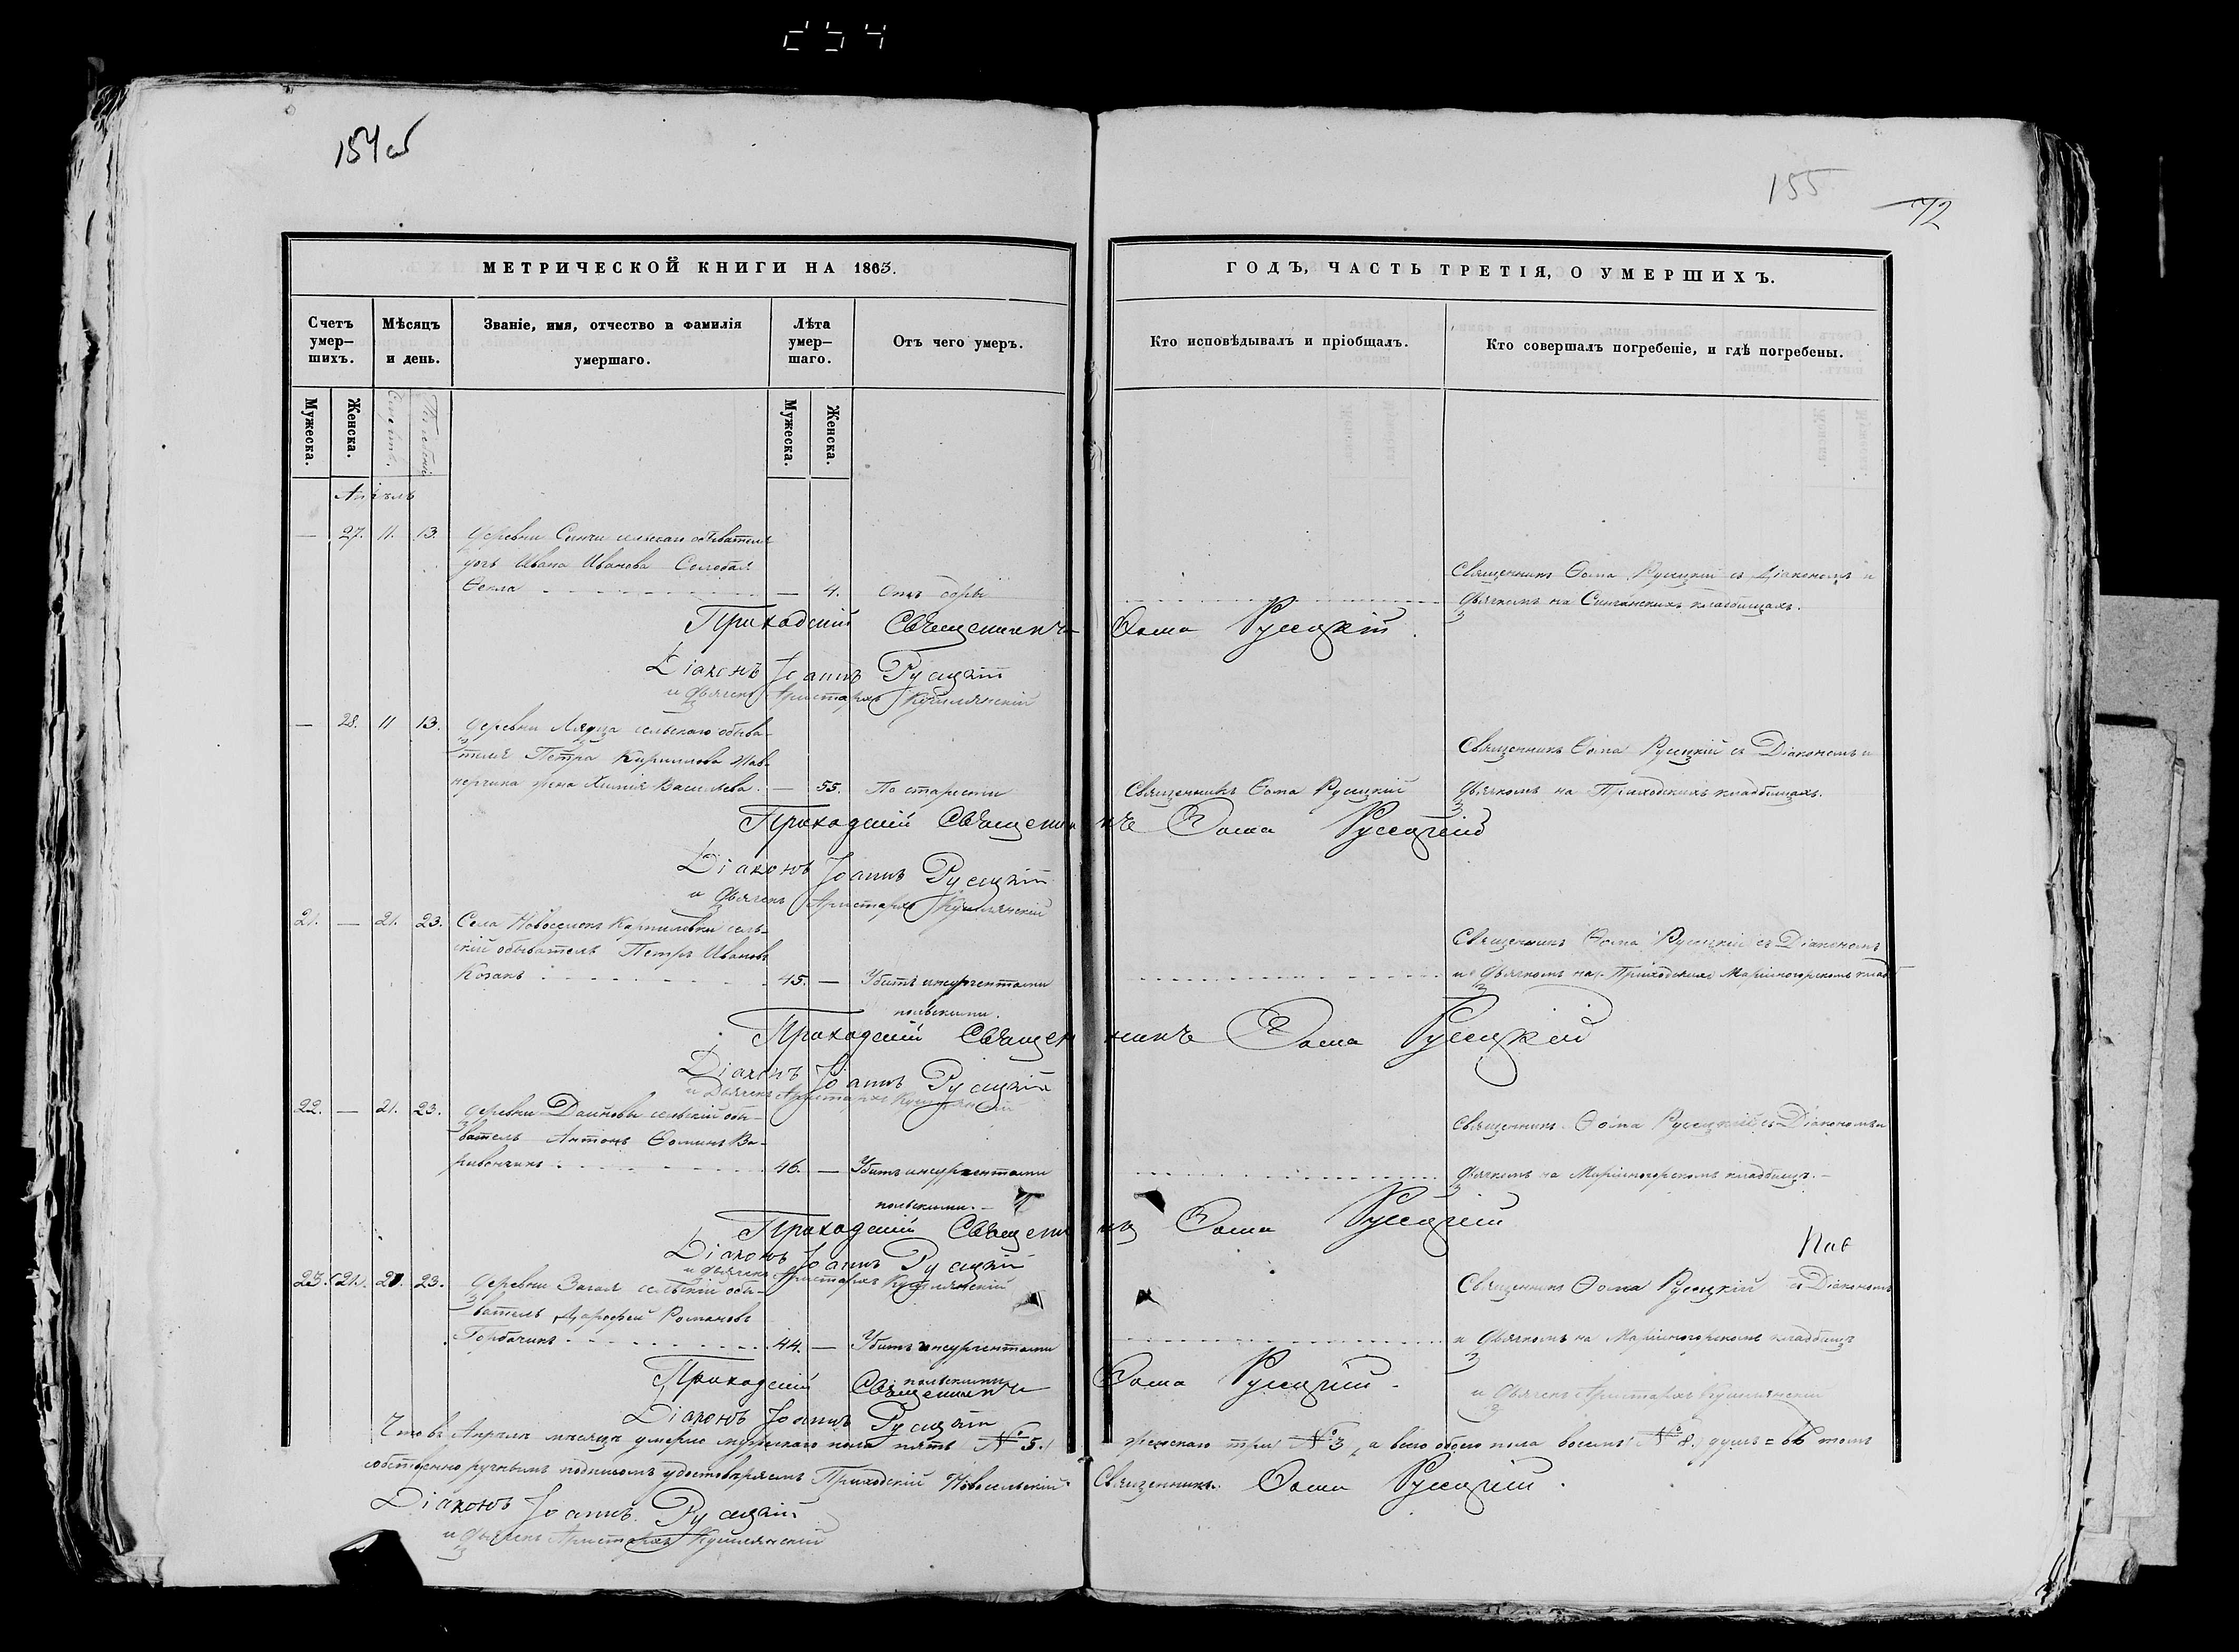 154об
155
72
МЕТРИЧЕСКОЙ КНИГИ НА 1863.
ГОДЪ, ЧАСТЬ ТРЕТІЯ, О УМЕРШИХЪ.
Счетъ умер–шихъ.
Мѣсяцъ и день.
Званіе, имя, отчество и фамилія умершаго.
Лѣта умер–шаго.
Отъ чего умеръ.
Кто исповѣдывалъ и пріобщалъ.
Кто совершалъ погребеніе, и гдѣ погребены.
Мужеска.
Женска.
Смерть.
Мужеска.
Женска.
Апрѣль
— 27. 11. 13. Деревни Синчи сельскаго обывателя
дочь Ивана Иванова
Ѳекла — 4. отъ
Священникъ Ѳома Русецкій съ Діакономъ и
Дьячкомъ на Синчанскихъ кладбищахъ.
Приходскій Священникъ Ѳома Русецкій.
Діаконъ Іоаннъ Русецкій
и Дьячекъ Аристархъ
— 28. 11 13. Деревни сельскаго обыва-
теля Петра Кириллова
жена Васильева. — 55. По старости
Священникъ Ѳома Русецкій
Священникъ Ѳома Русецкій съ Діакономъ и
Дьячкомъ на Приходскихъ кладбищахъ.
Приходскій Священникъ Ѳома Русецкій
Діаконъ Іоаннъ Русецкій
и Дьячекъ Аристархъ
21. — 21. 23. Села Новоселокъ сель-
скій обыватель Петръ Ивановъ
Козакъ 45. — Убитъ инсургентами
польскими.
Священникъ Ѳома Русецкій съ Діакономъ
и Дьячкомъ на Приходскихъ Маріиногорскомъ клад
Приходскій Священникъ Ѳома Русецкій
Діаконъ Іоаннъ Русецкій
и Дьячекъ Аристархъ
22. — 21. 23. Деревни Даиновы сельскій обы-
ватель Антонъ Ѳоминъ
46. — Убитъ инсургентами
польскими.
Священникъ Ѳома Русецкій съ Діакономъ и
Дьячкомъ на Маріиногорскомъ кладбищѣ.
Приходскій Ѳома Русецкій
Діаконъ Іоаннъ Русецкій
и Дьячекъ Аристархъ
23. 23. Деревни сельскій обы-
ватель Романовъ
Горбачикъ 44. — Убитъ инсургентами
польскими
Священникъ Ѳома Русецкій съ Діакономъ
и Дьячкомъ на Маріиногорскомъ кладбищѣ
Приходскій Священникъ Ѳома Русецкій.
Діаконъ Іоаннъ Русецкій
и Дьячекъ Аристархъ
Что въ Апрѣлѣ мѣсяцѣ умерло мужескаго пола пять № 5. женскаго три № 3, а всего обоего пола восемь № 8. душъ = въ томъ
собственноручнымъ подписомъ удостовѣряемъ Приходскій Новосельскій Священникъ Ѳома Русецкій.
Діаконъ Іоаннъ Русецкій
и Дьячекъ Аристархъ